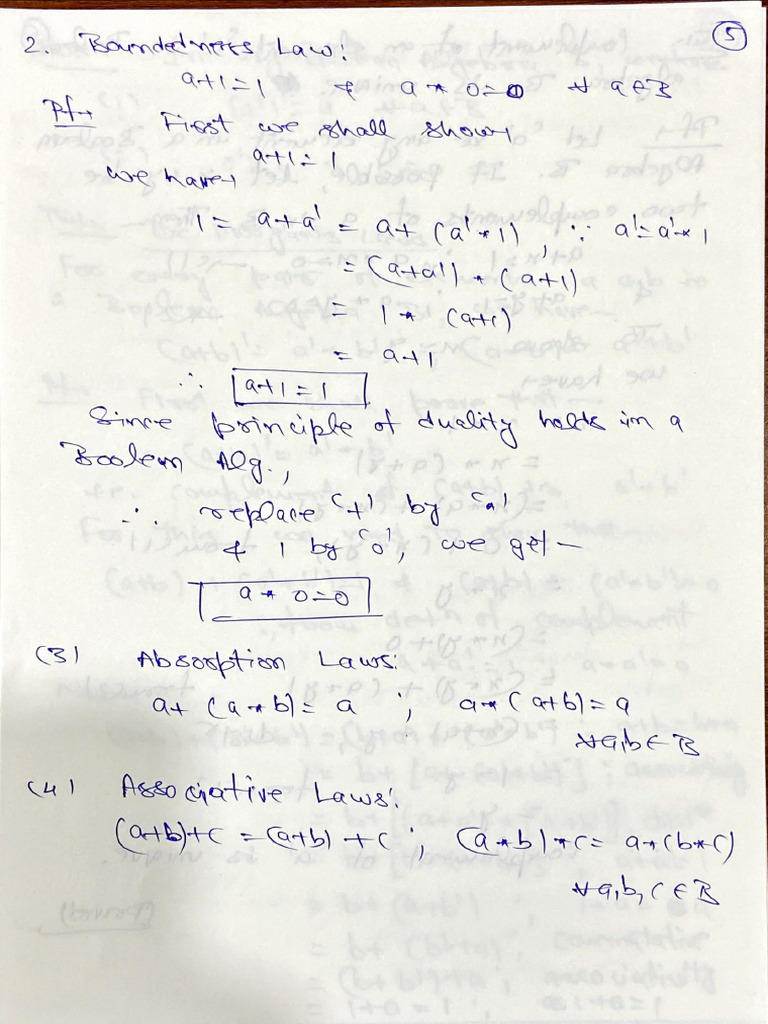 5
2. Boundedness Law:
a+1=1 & a * 0=0 ∀ a∈B
Pf→ First we shall show→
a+1=1
we have→
1 = a+a' = a+ (a' * 1), ∵ a'=a' * 1
= (a+a') * (a+1)
= 1 * (a+1)
= a+1
∴ a+1=1
Since principle of duality holds in a
Boolean Alg.,
∴ replace '+' by '*'
& 1 by '0', we get—
a * 0=0
(3) Absorption Laws:
a+ (a * b)= a ; a * (a+b)= a
∀ a,b ∈ B
(4) Associative Laws:
(a+b)+c =(a+b) +c ; (a * b) * c= a * (b * c)
∀ a,b,c ∈ B